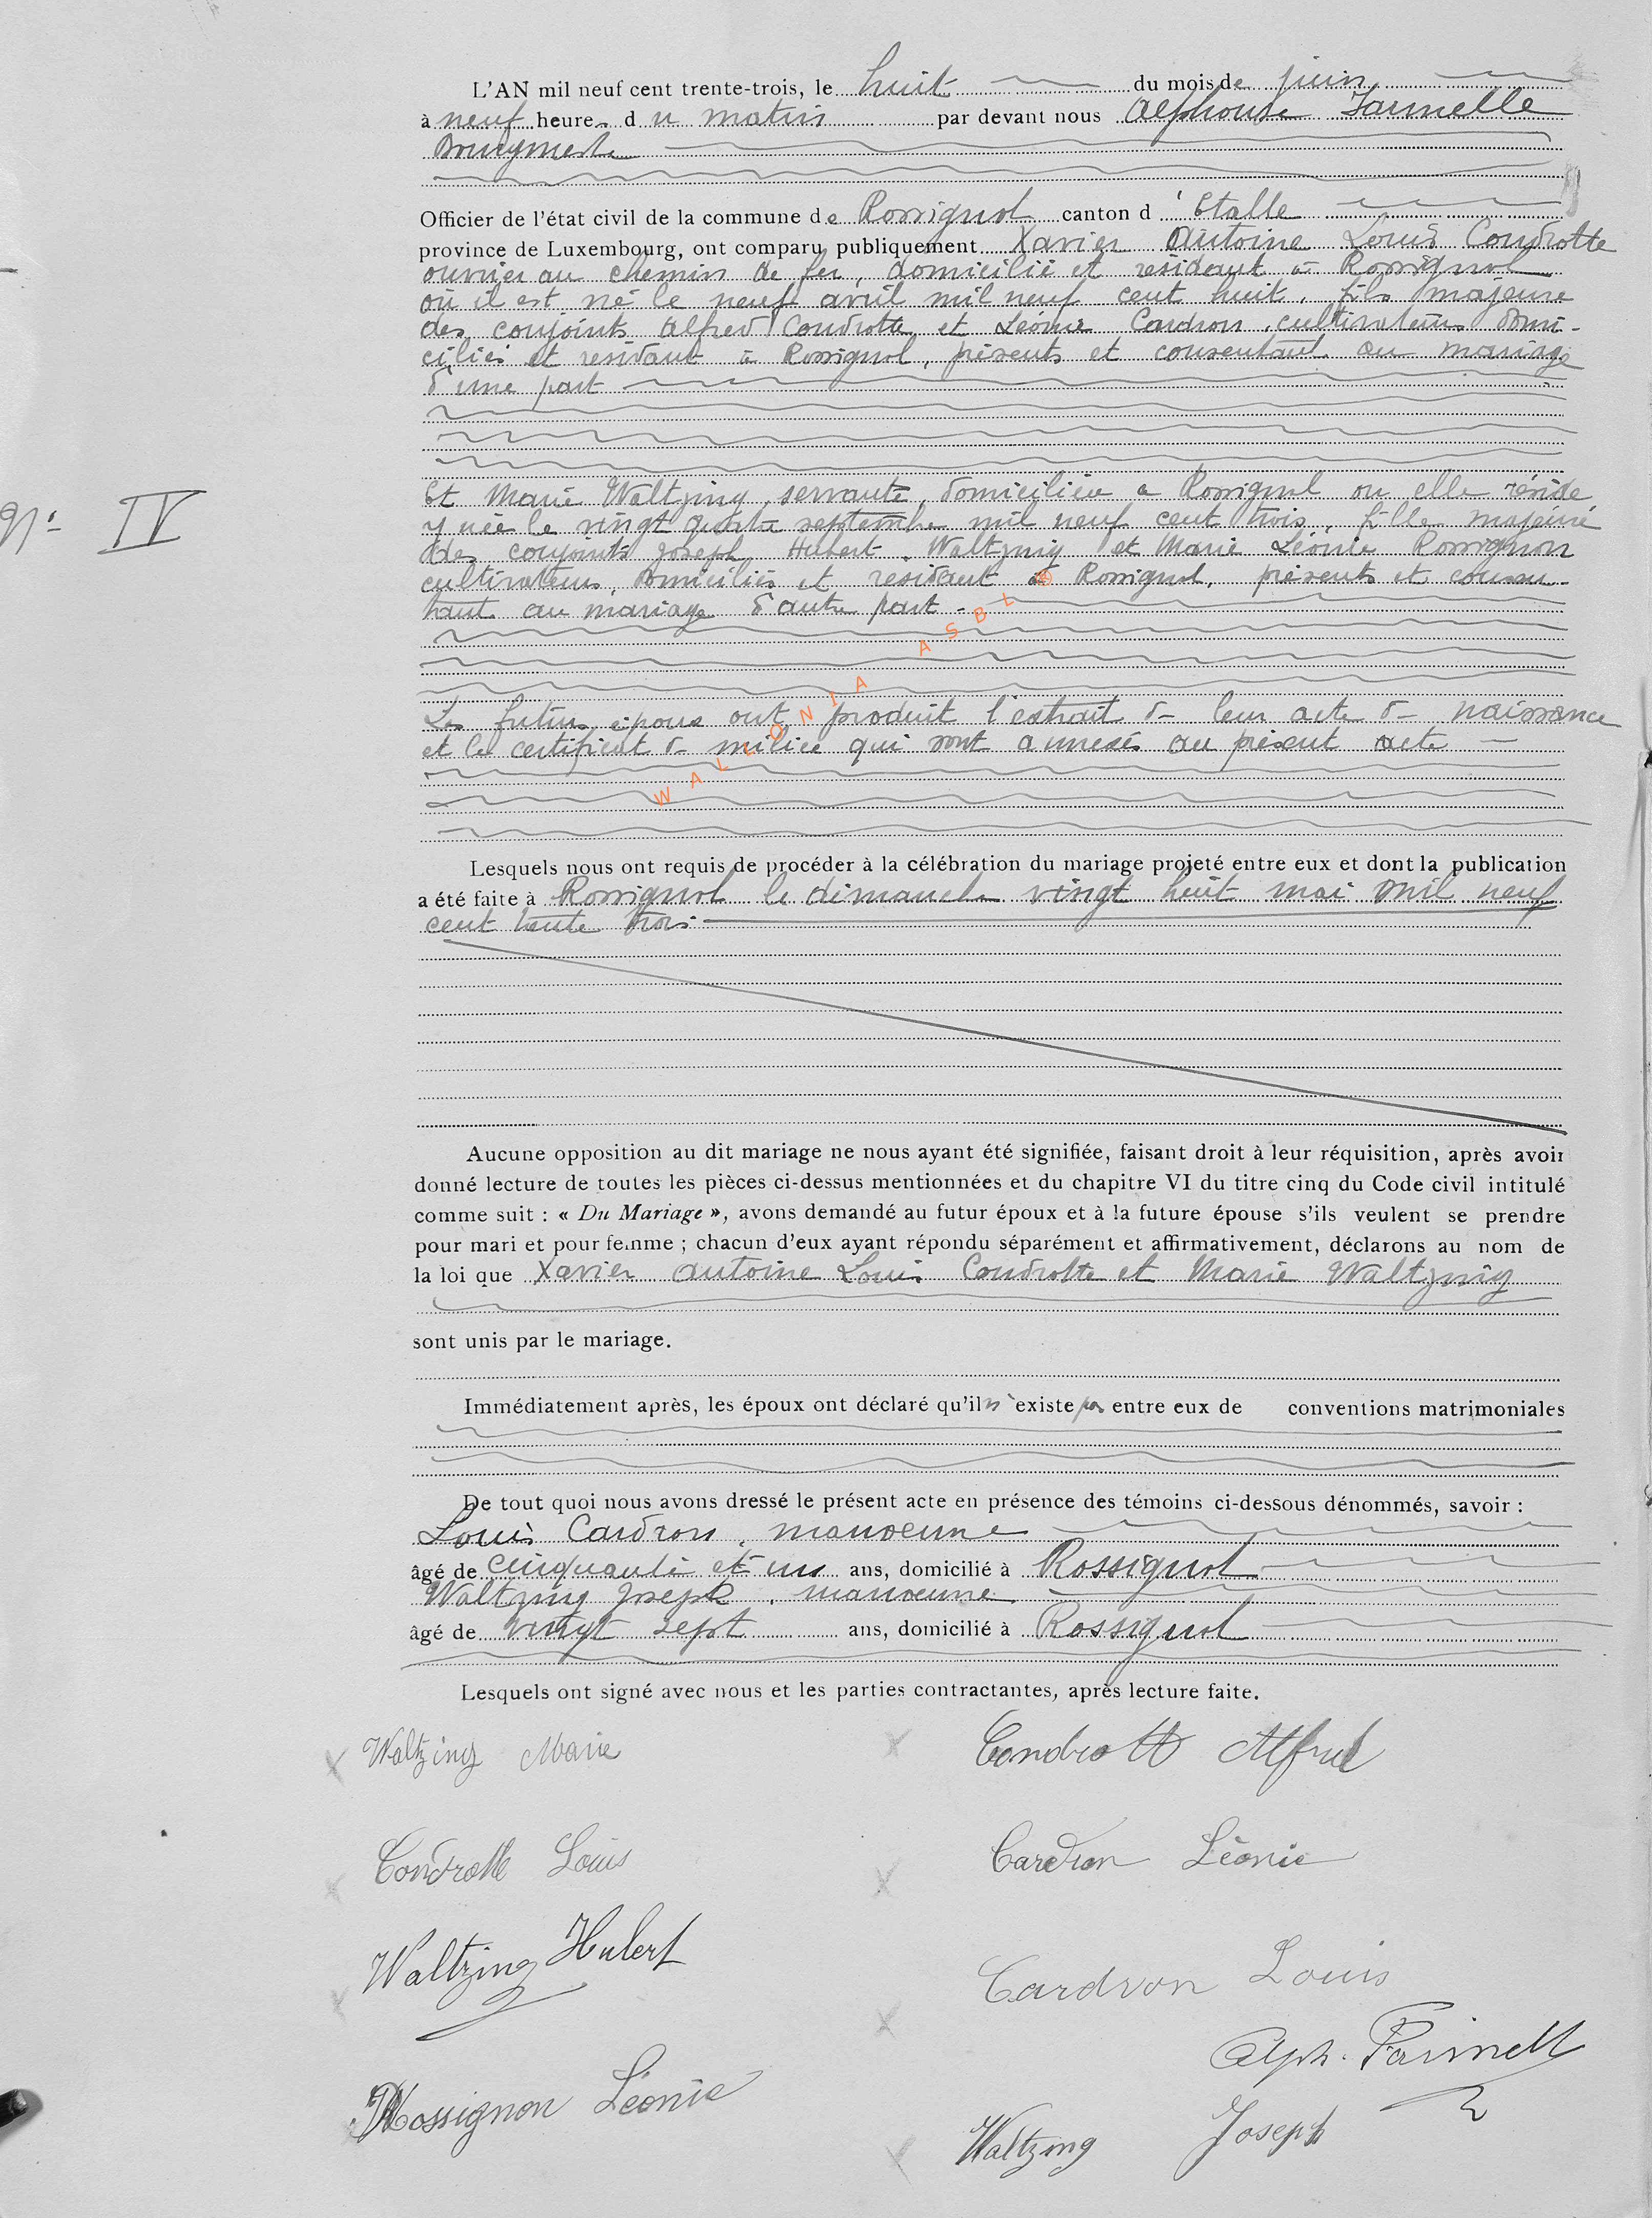 L'AN mil neuf cent trente-trois, le huit du mois de juin
à neuf heures du matin par devant nous Alphonse
Bourgmestre
Officier de l'état civil de la commune de Rossignol canton d'Etalle
province de Luxembourg, ont comparu publiquement Xavier Antoine Louis Condrotte
ouvrier au chemin de fer, domicilié et résidant à Rossignol
où il est né le neuf avril mil neuf cent huit, fils majeure
des conjoints Alfred Condrotte et Léonie Cardron, cultivateurs domi-
ciliés et résidant à Rossignol, présents et consentant au mariage
d'une part
N° IV
Et Marie Waltzing, servante, domiciliée à Rossignol ou elle réside
y née le vingt quatre septembre mil neuf cent trois, fille majeure
des conjoints Joseph Hubert Waltzing et Marie Léonie Rossignon
cultivateurs, domiciliés et résidant à Rossignol, présents et consen-
tant au mariage d'autre part -
Les futurs époux ont produit l'extrait de leur acte de naissance
et le certificat de milice qui sont annexés au présent acte
WALLONIA ASBL
Lesquels nous ont requis de procéder à la célébration du mariage projeté entre eux et dont la publication
a été faite à Rossignol le dimanche vingt huit mai mil neuf
cent trente trois
Aucune opposition au dit mariage ne nous ayant été signifiée, faisant droit à leur réquisition, après avoir
donné lecture de toutes les pièces ci-dessus mentionnées et du chapitre VI du titre cinq du Code civil intitulé
comme suit : « Du Mariage », avons demandé au futur époux et à la future épouse s'ils veulent se prendre
pour mari et pour femme ; chacun d'eux ayant répondu séparément et affirmativement, déclarons au nom de
la loi que Xavier Antoine Louis Condrotte et Marie Waltzing
sont unis par le mariage.
Immédiatement après, les époux ont déclaré qu'il n'existe pas entre eux de conventions matrimoniales
De tout quoi nous avons dressé le présent acte en présence des témoins ci-dessous dénommés, savoir :
Louis Cardron, manoeuvre
âgé de cinquante et un ans, domicilié à Rossignol
Waltzing Joseph, manoeuvre
âgé de vingt sept ans, domicilié à Rossignol
Lesquels ont signé avec nous et les parties contractantes, après lecture faite.
Waltzing Marie
Condrott Alfred
Condrotte Louis
Cardron Léonie
Waltzing Hubert
Cardron Louis
Alph.
Rossignon Léonie
Waltzing Joseph